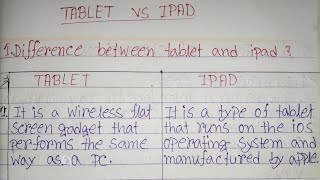 TABLET VS IPAD
1. Difference between tablet and ipad?
TABLET IPAD
1. It is a wireless flat It is a type of tablet
screen gadget that that runs on the ios
performs the same operating system and
way as a PC. manufactured by apple.